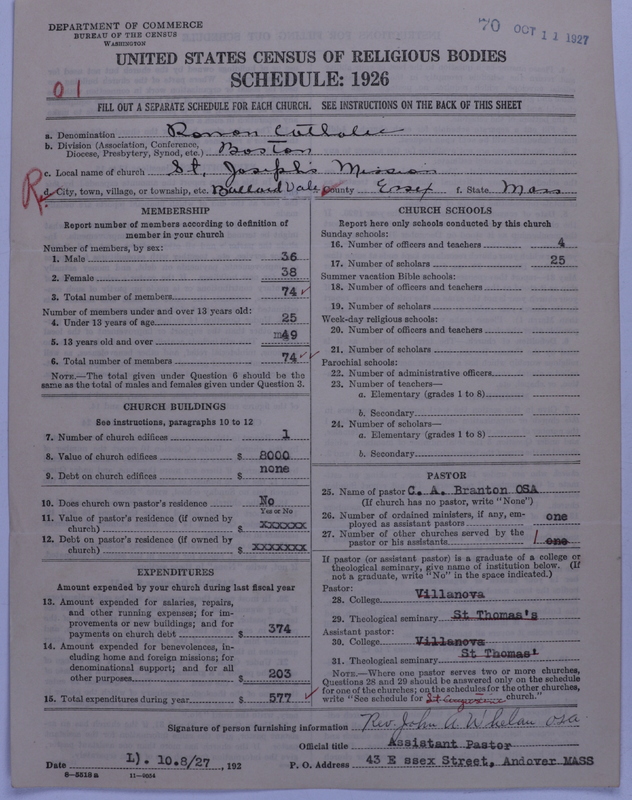 DEPARTMENT OF COMMERCE
BUREAU OF THE CENSUS
WASHINGTON
70 OCT 11 1927
UNITED STATES CENSUS OF RELIGIOUS BODIES
SCHEDULE: 1926
01
FILL OUT A SEPARATE SCHEDULE FOR EACH CHURCH. SEE INSTRUCTIONS ON THE BACK OF THIS SHEET
a. Denomination Roman Catholic
b. Division (Association, Conference, Diocese, Presbytery, Synod, etc.) Boston
c. Local name of church St. Joseph's Mission
d. City, town, village, or township, etc. Ballard Vale County Essex f. State Mass
MEMBERSHIP
Report number of members according to definition of
member in your church
Number of members, by sex:
1. Male 36
2. Female 38
3. Total number of members 74
Number of members under and over 13 years old:
4. Under 13 years of age 25
5. 13 years old and over 49
6. Total number of members 74
NOTE.—The total given under Question 6 should be the
same as the total of males and females given under Question 3.
CHURCH BUILDINGS
See instructions, paragraphs 10 to 12
7. Number of church edifices 1
8. Value of church edifices $ 8000
9. Debt on church edifices $ none
10. Does church own pastor's residence No
Yes or No
11. Value of pastor's residence (if owned by
church) $ xxxxxx
12. Debt on pastor's residence (if owned by
church) $ xxxxxxx
EXPENDITURES
Amount expended by your church during last fiscal year
13. Amount expended for salaries, repairs,
and other running expenses; for im-
provements or new buildings; and for
payments on church debt $ 374
14. Amount expended for benevolences, in-
cluding home and foreign missions; for
denominational support; and for all
other purposes $ 203
15. Total expenditures during year $ 577
CHURCH SCHOOLS
Report here only schools conducted by this church
Sunday schools:
16. Number of officers and teachers 4
17. Number of scholars 25
Summer vacation Bible schools:
18. Number of officers and teachers
19. Number of scholars
Week-day religious schools:
20. Number of officers and teachers
21. Number of scholars
Parochial schools:
22. Number of administrative officers
23. Number of teachers—
a. Elementary (grades 1 to 8)
b. Secondary
24. Number of scholars—
a. Elementary (grades 1 to 8)
b. Secondary
PASTOR
25. Name of pastor C. A. Branton OSA
(If church has no pastor, write "None")
26. Number of ordained ministers, if any, em-
ployed as assistant pastors one
27. Number of other churches served by the
pastor or his assistants 1 one
If pastor (or assistant pastor) is a graduate of a college or
theological seminary, give name of institution below. (If
not a graduate, write "No" in the space indicated.)
Pastor:
28. College Villanova
29. Theological seminary St Thomas's
Assistant pastor:
30. College Villanova
31. Theological seminary St Thomas'
NOTE.—Where one pastor serves two or more churches,
Questions 28 and 29 should be answered only on the schedule
for one of the churches; on the schedules for the other churches,
write "See schedule for St church."
Signature of person furnishing information Rev. John A. Whelan OSA
Official title Assistant Pastor
Date 10.8/27, 192 P. O. Address 43 E ssex Street, Andover MASS
8-5518a 11-9034